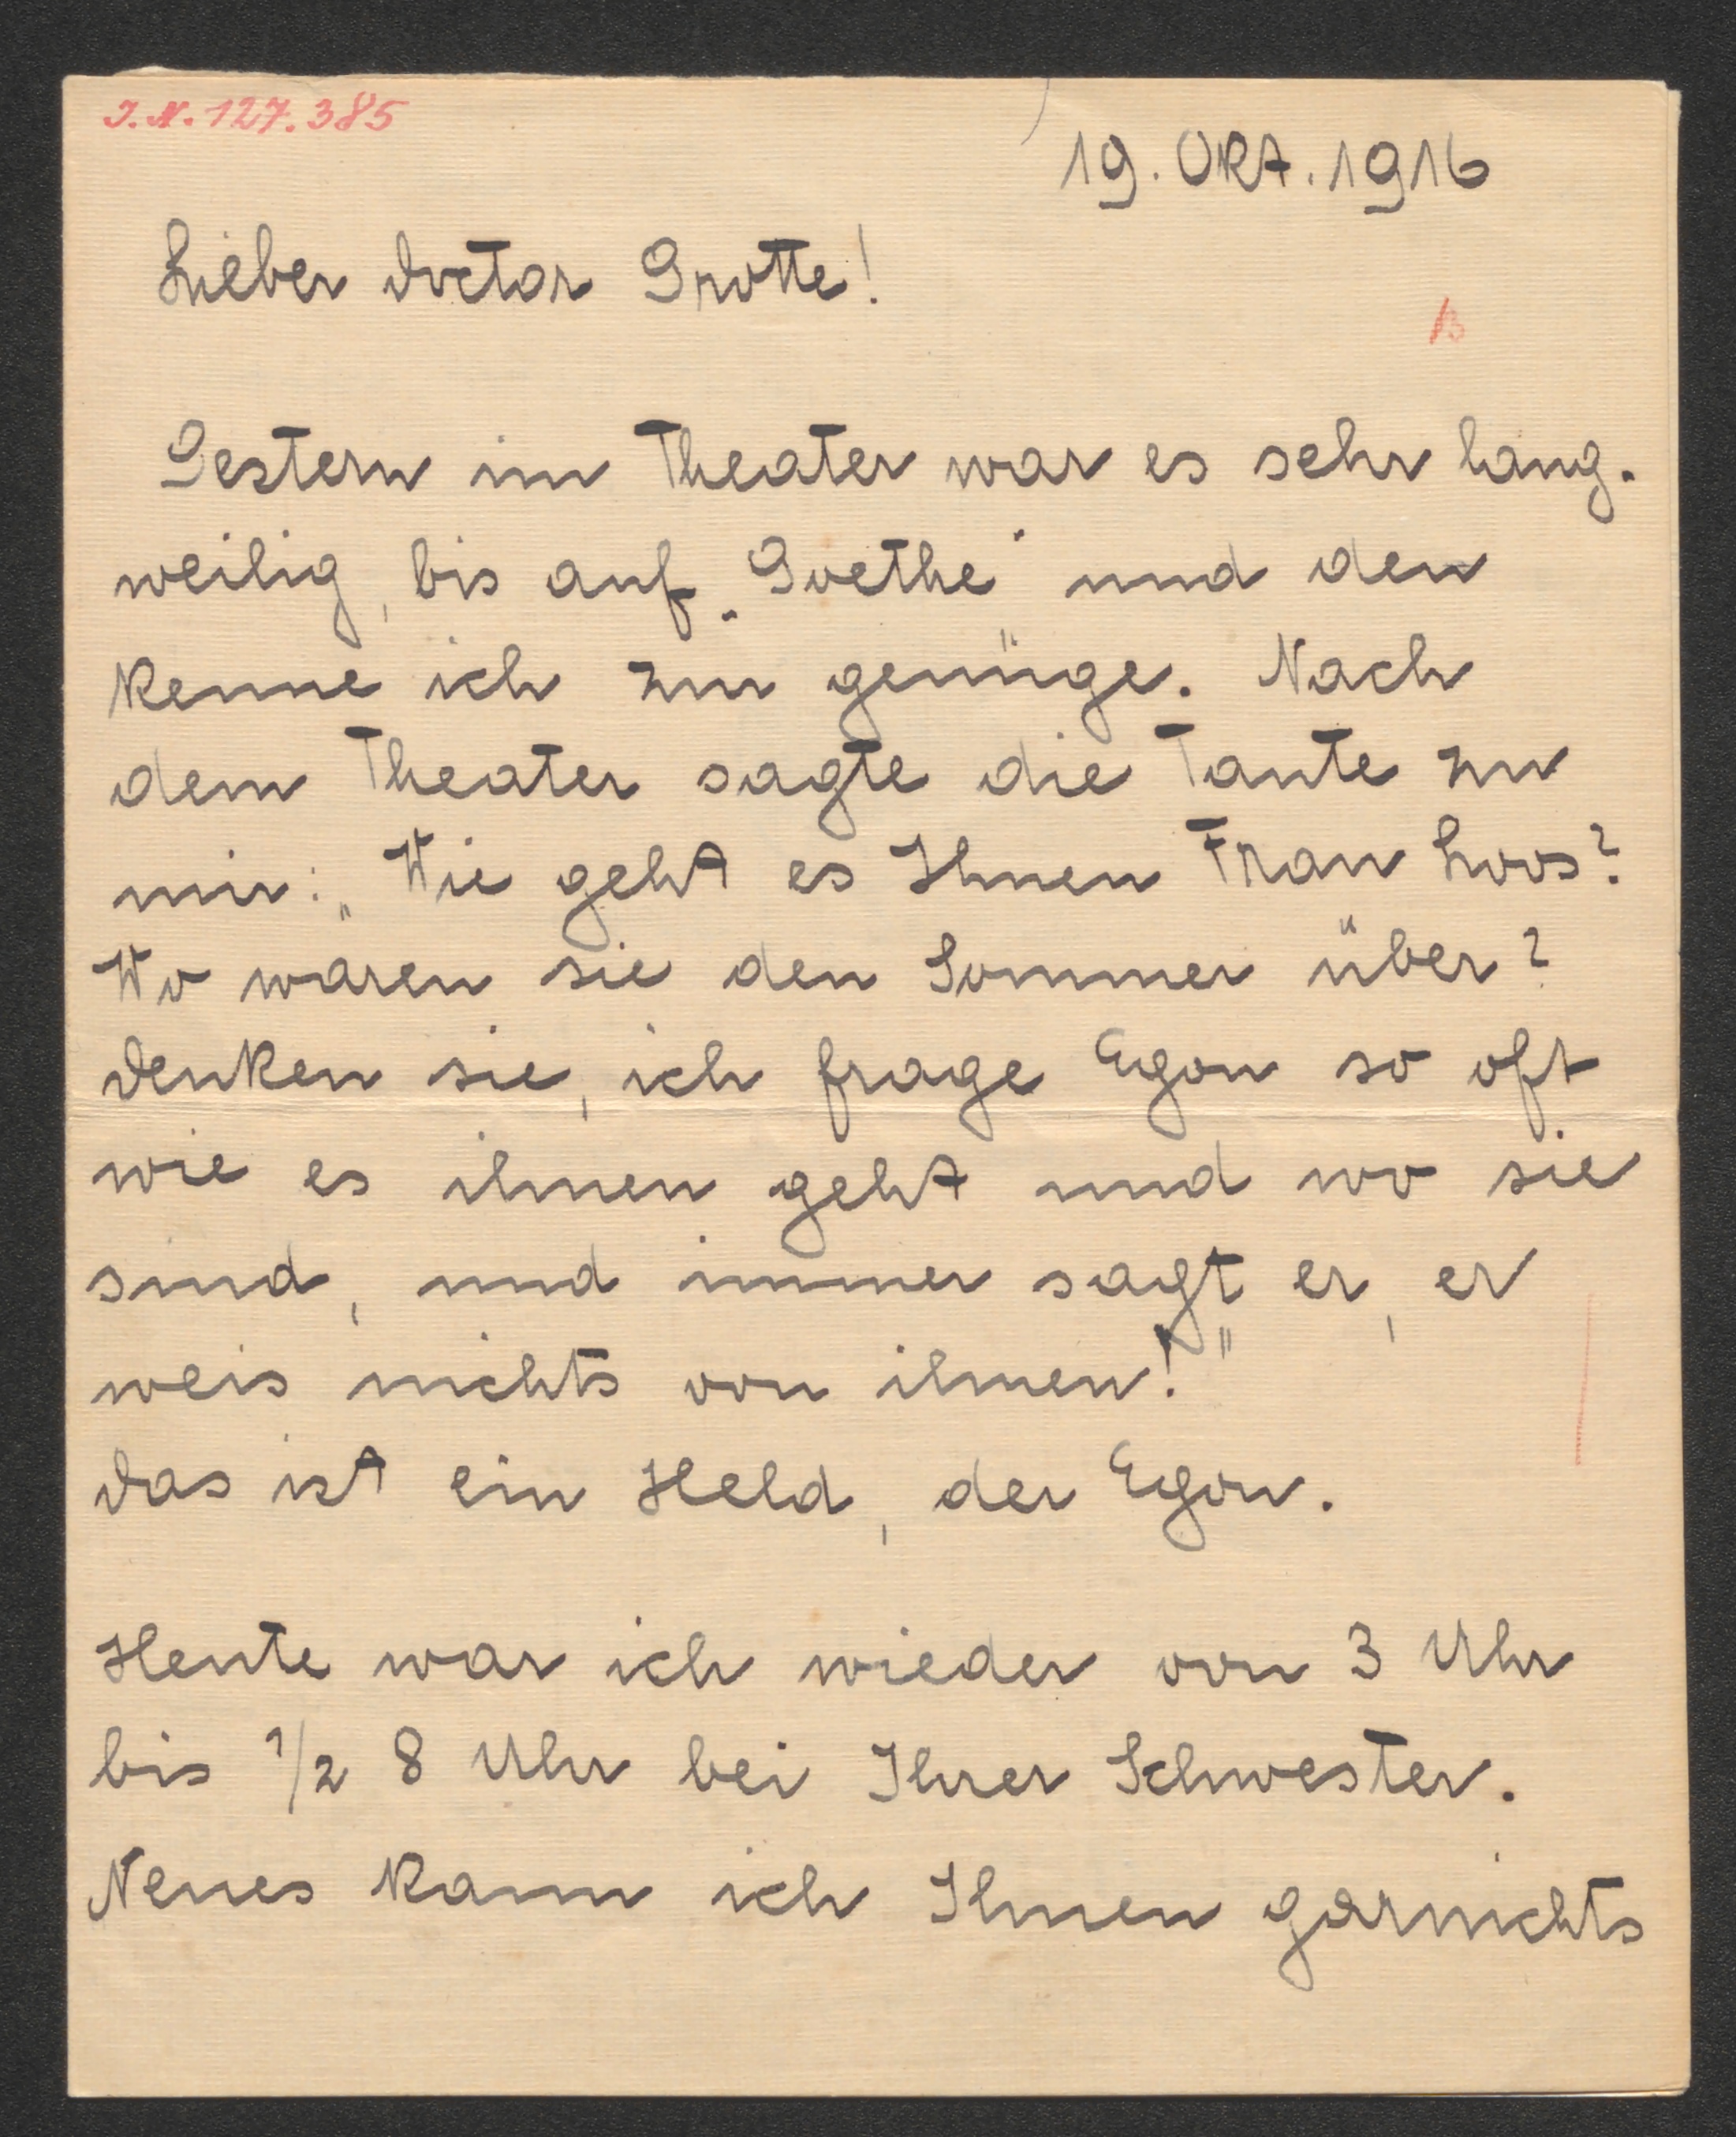 I.N. 127.385
19. OKT. 1916
Lieber Doctor Grotte!
Gestern im Theater war es sehr lang-
weilig, bis auf „Goethe" und den
kenne ich zur genüge. Nach
dem Theater sagte die Tante zu
mir: „Wie geht es Ihnen Frau Loos?
Wo waren sie den Sommer über?
Denken sie, ich frage Egon so oft
wie es ihnen geht und wo sie
sind, und immer sagt er, er
weis nichts von ihnen!"
Das ist ein Held, der Egon.
Heute war ich wieder von 3 Uhr
bis 1/2 8 Uhr bei Ihrer Schwester.
Neues kann ich Ihnen garnichts